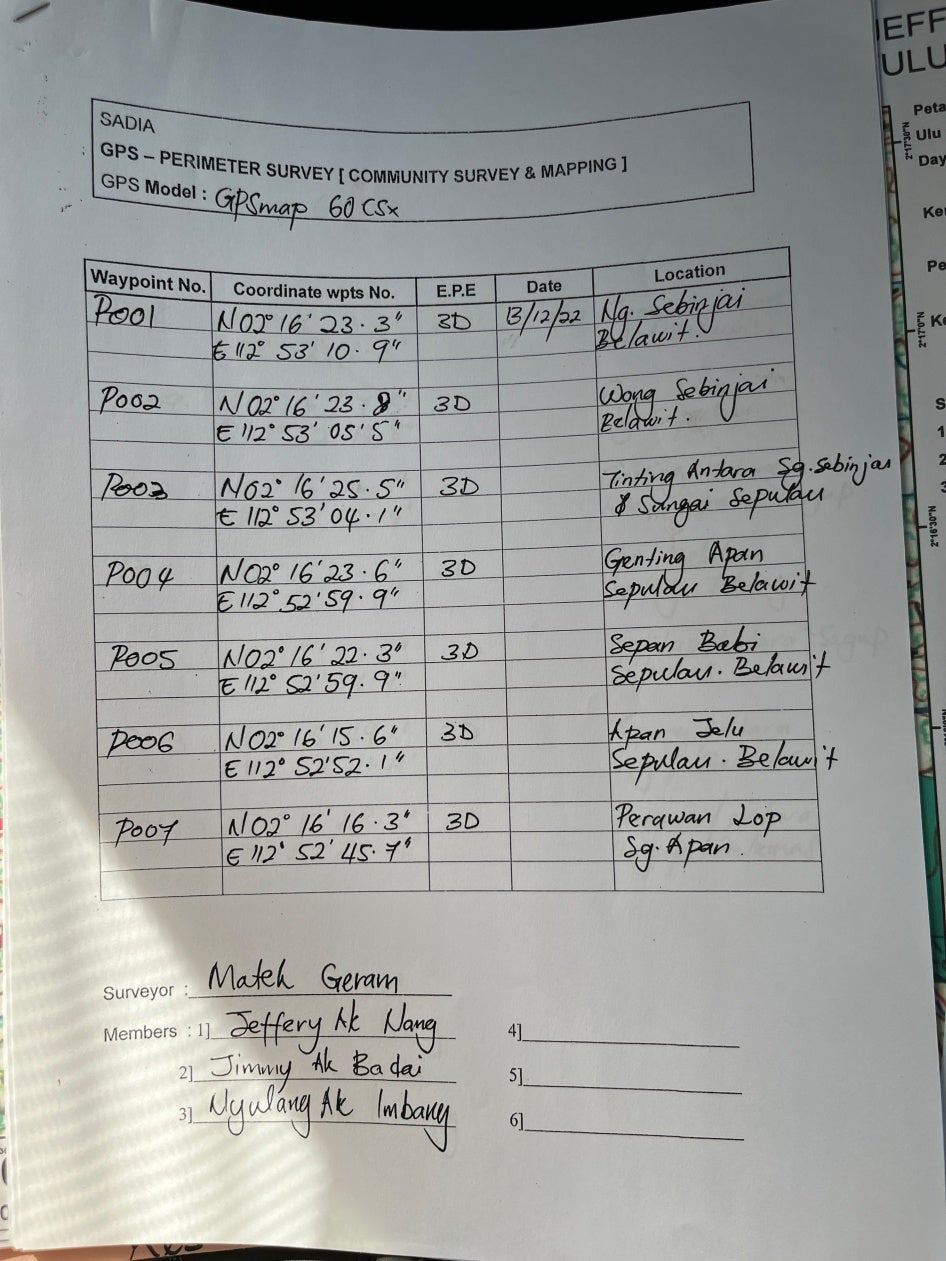 SADIA
GPS – PERIMETER SURVEY [ COMMUNITY SURVEY & MAPPING ]
GPS Model : GPSmap 60 CSx
Waypoint No. Coordinate wpts No. E.P.E Date Location
P001 N02° 16' 23.3" 3D 13/12/22 Ng. Sebinjai
E 112° 53' 10.9" Belawit.
P002 N02° 16' 23.8" 3D Wong Sebinjai
E 112° 53' 05'5" Belawit.
P003 N02° 16' 25.5" 3D Tinting Antara Sg. Sebinjai
E 112° 53' 04.1" & Sungai Sepulau
P004 N02° 16' 23.6" 3D Genting Apan
E 112° 52' 59.9" Sepulau Belawit
P005 N02° 16' 22.3" 3D Sepan Babi
E 112° 52' 59.9" Sepulau. Belawit
P006 N02° 16' 15.6" 3D Apan Jelu
E 112° 52' 52.1" Sepulau. Belawit
P007 N02° 16' 16.3" 3D Perawan Lop
E 112° 52' 45.7" Sg. Apan.
Surveyor : Mateh Geram
Members : 1] Jeffery Ak Nang 4]
2] Jimmy Ak Badai 5]
3] Nyulang Ak Imbang 6]
JEFF
ULU
Peta
Ulu
Day
2°17'30"N
2°17'0"N
2°16'30"N